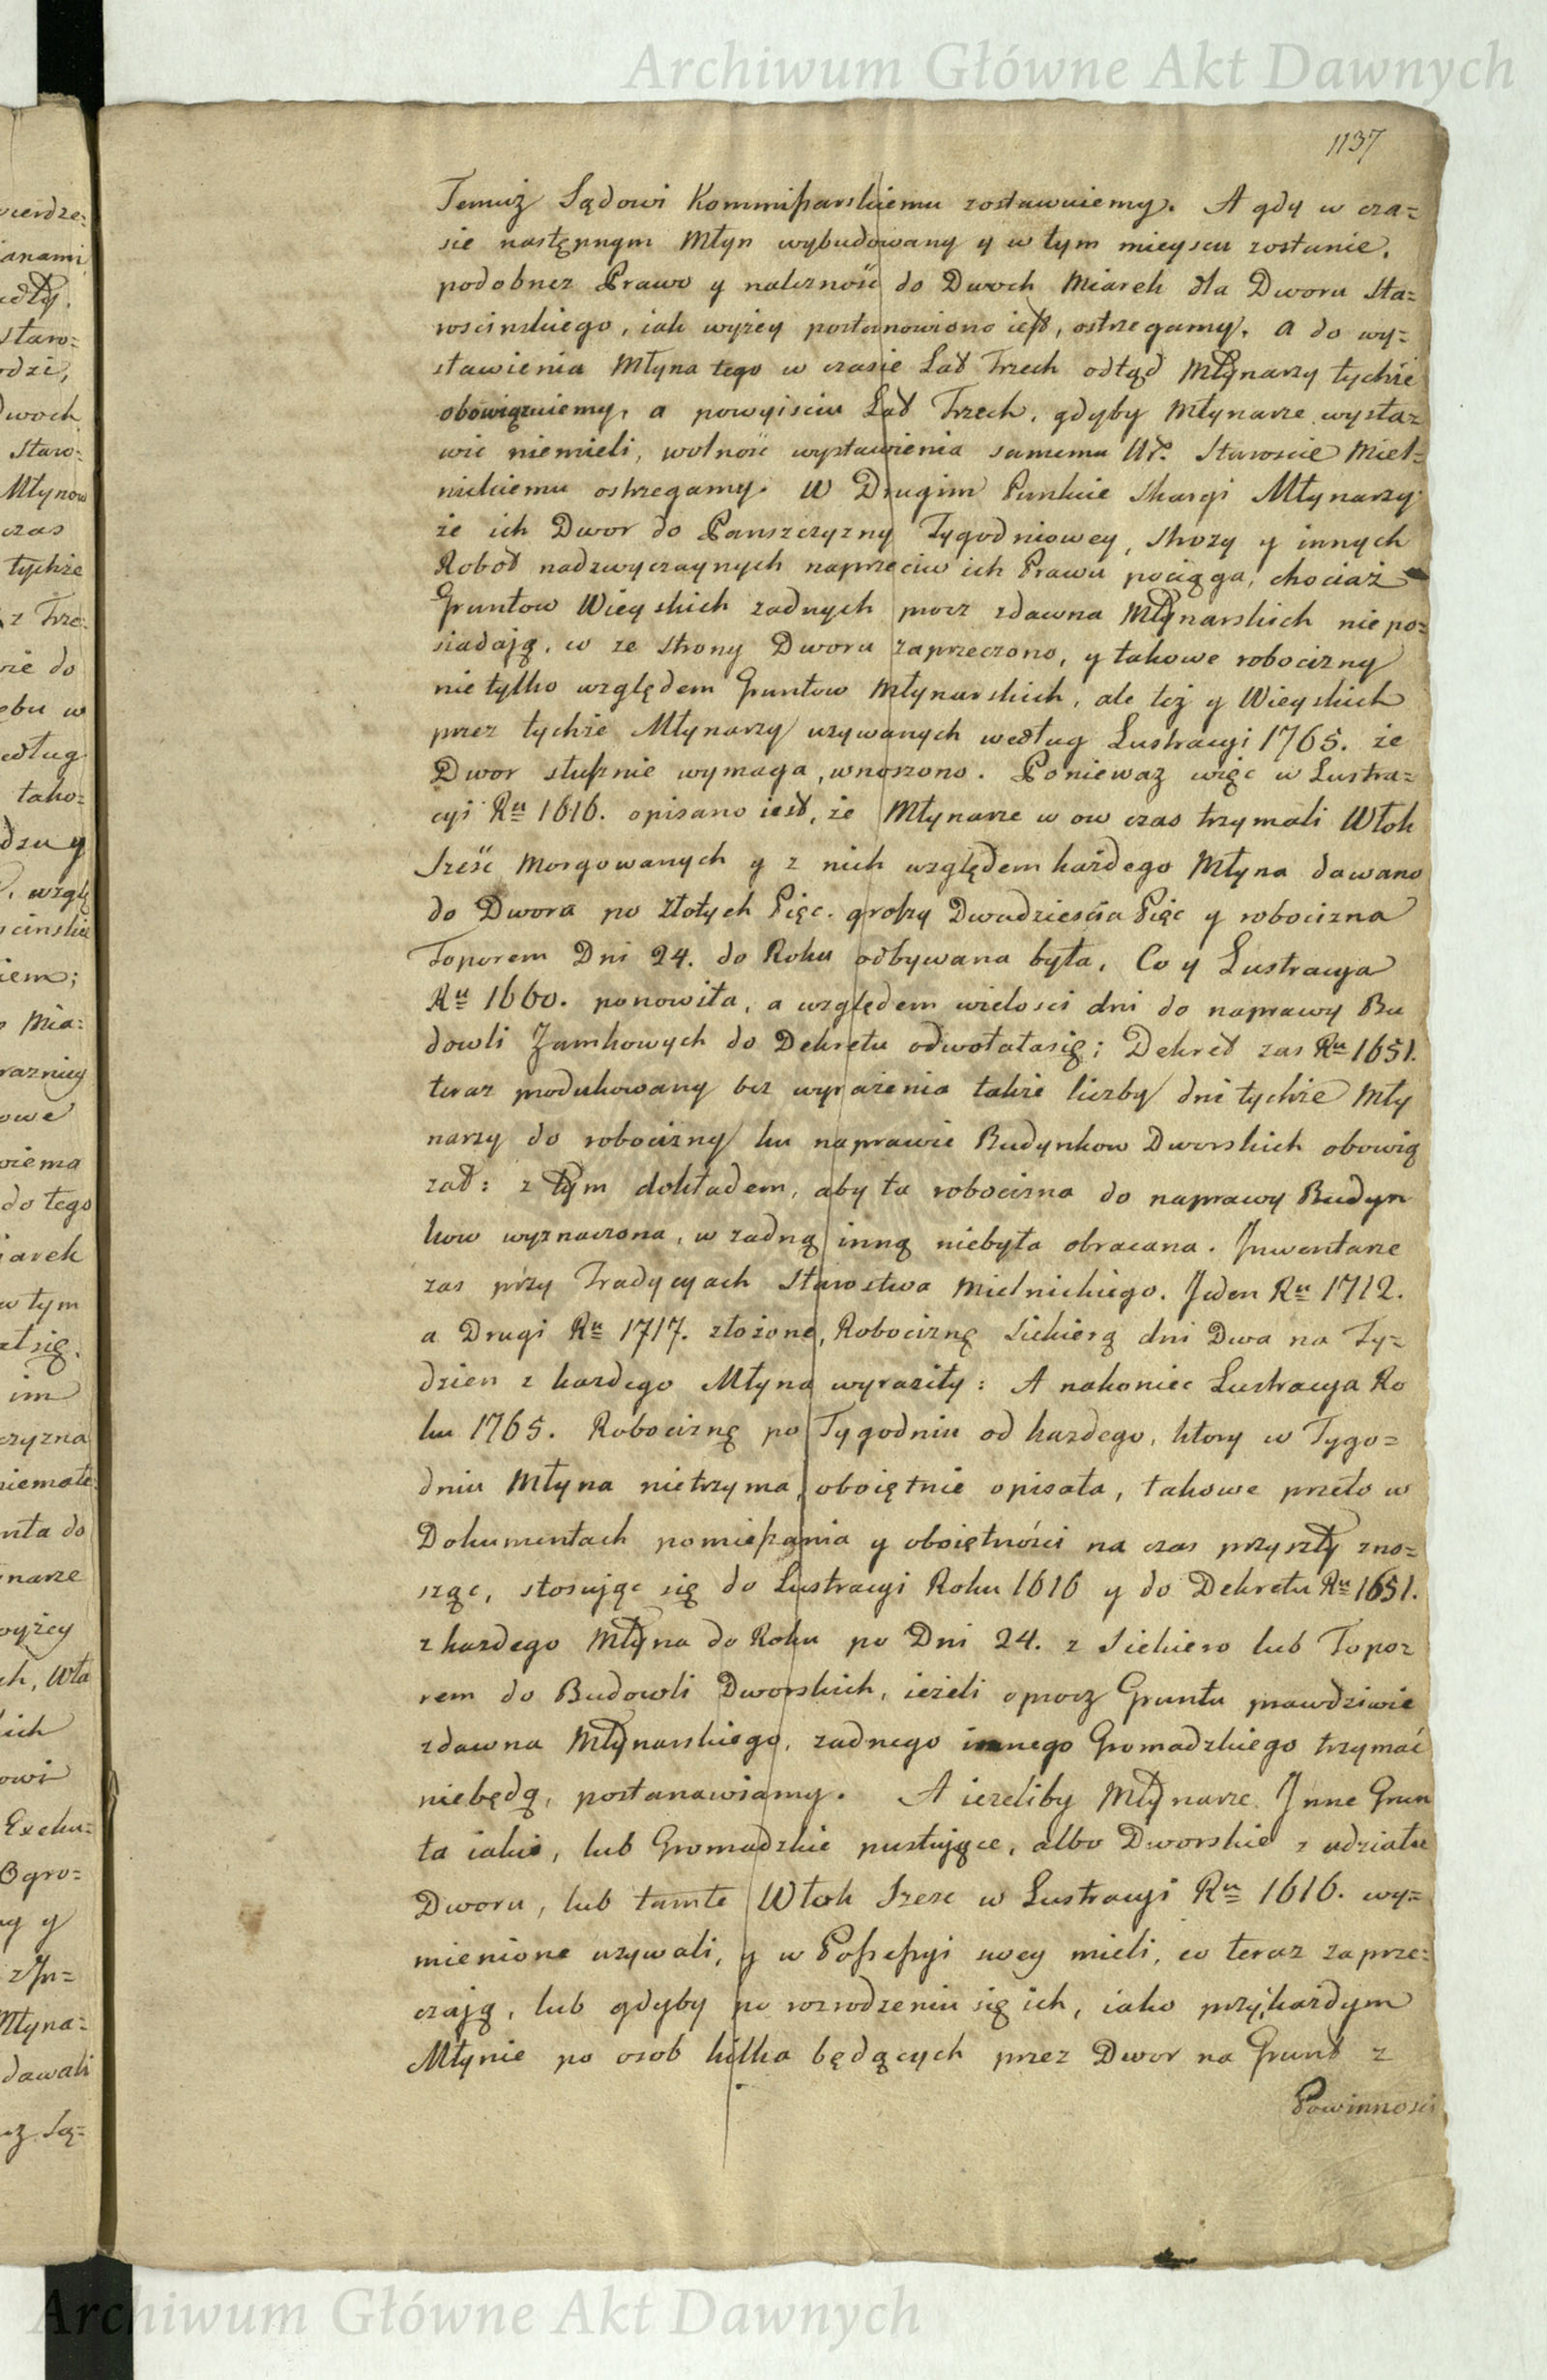 Archiwum Główne Akt Dawnych
1137
Temuż Sądowi Kommissarskiemu zostawuiemy. A gdy w cza=
sie następnym Młyn wybudowany y w tym mieyscu zostanie.
podobnez Prawo y należność do Dwoch Miarek dla Dworu Sta=
roscinskiego, iak wyżey postanowiono iest, ostrzegamy. a do wy=
stawienia Młyna tego w czasie Lat Trzech odtąd Młynarzy tychże
obowiązuiemy, a powyisciu Lat Trzech, gdyby Młynarze wysta=
wić niemieli, wolność wystawienia samemu Ur. Staroscie Miel=
nickiemu ostrzegamy. W Drugim Punkcie Skargi Młynarzy
że ich Dwor do Panszczyzny Tygodniowey, Strozy y innych
Robot nadzwyczaynych naprzeciw ich Prawu pociąga, chociaż
Gruntow Wieyskich zadnych procz zdawna Młynarskich nie po=
siadają, co ze strony Dworu zaprzeczono, y takowe robocizny
nie tylko względem Gruntow Młynarskich, ale też y Wieyskich
przez tychże Młynarzy uzywanych według Lustracyi 1765. że
Dwor słusznie wymaga, wnoszono. Poniewaz więc w Lustra=
cyi Ru 1616. opisano iest, że Młynarze w ow czas trzymali Włok
Sześć morgowanych y z nich względem każdego Młyna dawano
do Dwora po Złotych Pięc. groszy Dwadziescia Pięc y robocizna
Toporem Dni 24. do Roku odbywana była, Co y Lustracya
Ru 1660. ponowiła, a względem wielosci dni do naprawy Bu
dowli Zamkowych do Dekretu odwołałasię; Dekret zas Ru 1651.
teraz produkowany bez wyrażenia także liczby dni tychże Mły
narzy do robocizny ku naprawie Budynkow Dworskich obowią
zał: z tym dokładem, aby ta robocizna do naprawy Budyn
kow wyznaczona, w zadną inną niebyła obracana. Jnwentarze
zas przy Tradycyach Starostwa Mielnickiego. Jeden Ru 1712.
a Drugi Ru 1717. złożone, Robociznę Siekierą dni Dwa na Ty=
dzien z kazdego Młyna wyraziły: A nakoniec Lustracya Ro
ku 1765. Robociznę po Tygodniu od kazdego, ktory w Tygo=
dniu Młyna nietrzyma, oboiętnie opisała, takowe przeto w
Dokumentach pomieszania y oboiętności na czas przyszły zno=
sząc, stosując się do Lustracyi Roku 1616 y do Dekretu Ru 1651.
z kazdego Młyna do Roku po Dni 24. z Siekiero lub Topo=
rem do Budowli Dworskich, ieżeli oprocz Gruntu prawdziwie
zdawna Młynarskiego, zadnego innego Gromadzkiego trzymać
niebędą, postanawiamy. A iezeliby Młynarze Jnne Grun
ta iakie, lub Gromadzkie pustujące, albo Dworskie z udziału
Dworu, lub tamte Włok Szesc w Lustracyi Ru 1616. wy=
mienione uzywali, y w Possessyi swey mieli, co teraz zaprze=
czają, lub gdyby po rozrodzeniu się ich, iako przy kazdym
Młynie po osob kilka będących przez Dwor na Grunt z
Powinnosci
Archiwum Główne Akt Dawnych